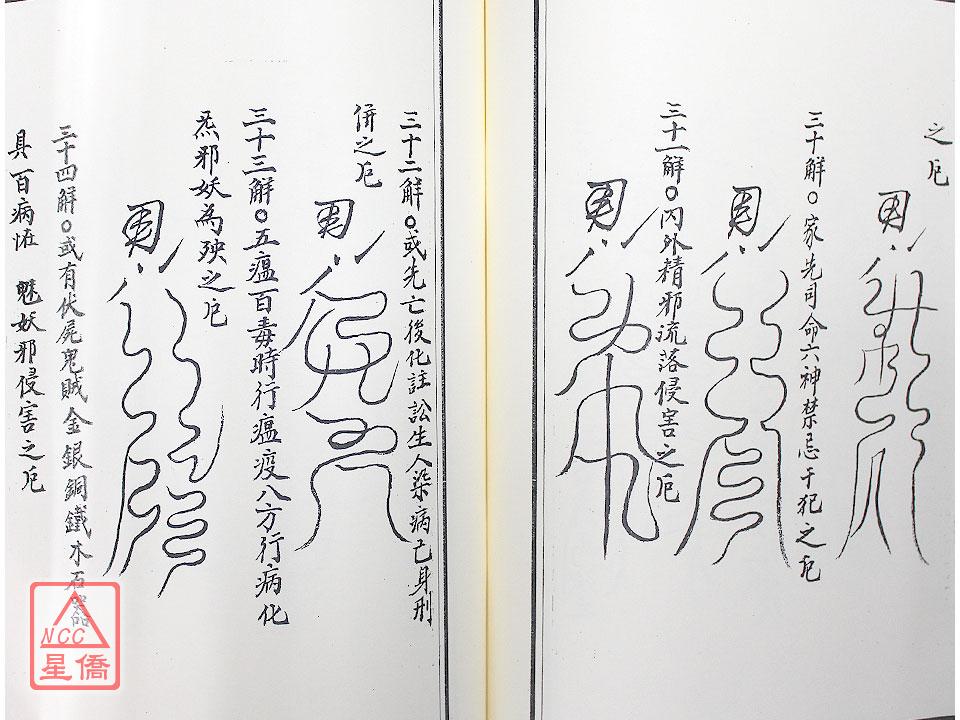 之厄
三十解○家先司命六神禁忌干犯之厄
三十一解○内外精邪流落侵害之厄
三十二解○或先亡後化註訟生人染病己身刑
併之厄
三十三解○五瘟百毒時行瘟疫八方行病化
炁邪妖為殃之厄
三十四解○或有伏屍鬼賊金銀銅鐵木石器
具百病 魅妖邪侵害之厄
NCC
星僑